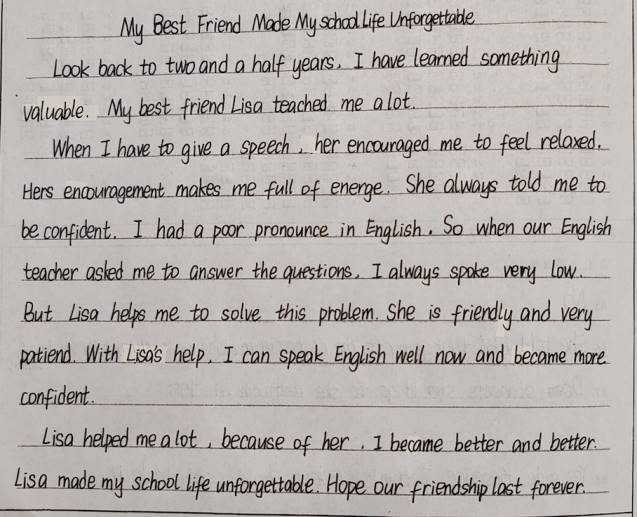 My Best Friend Made My school Life Unforgettable
Look back to two and a half years, I have learned something
valuable. My best friend Lisa teached me a lot.
When I have to give a speech, her encouraged me to feel relaxed.
Hers encouragement makes me full of energe. She always told me to
be confident. I had a poor pronounce in English. So when our English
teacher asked me to answer the questions, I always spoke very low.
But Lisa helps me to solve this problem. She is friendly and very
patiend. With Lisa's help, I can speak English well now and became more
confident.
Lisa helped me a lot, because of her, I became better and better.
Lisa made my school life unforgettable. Hope our friendship last forever.